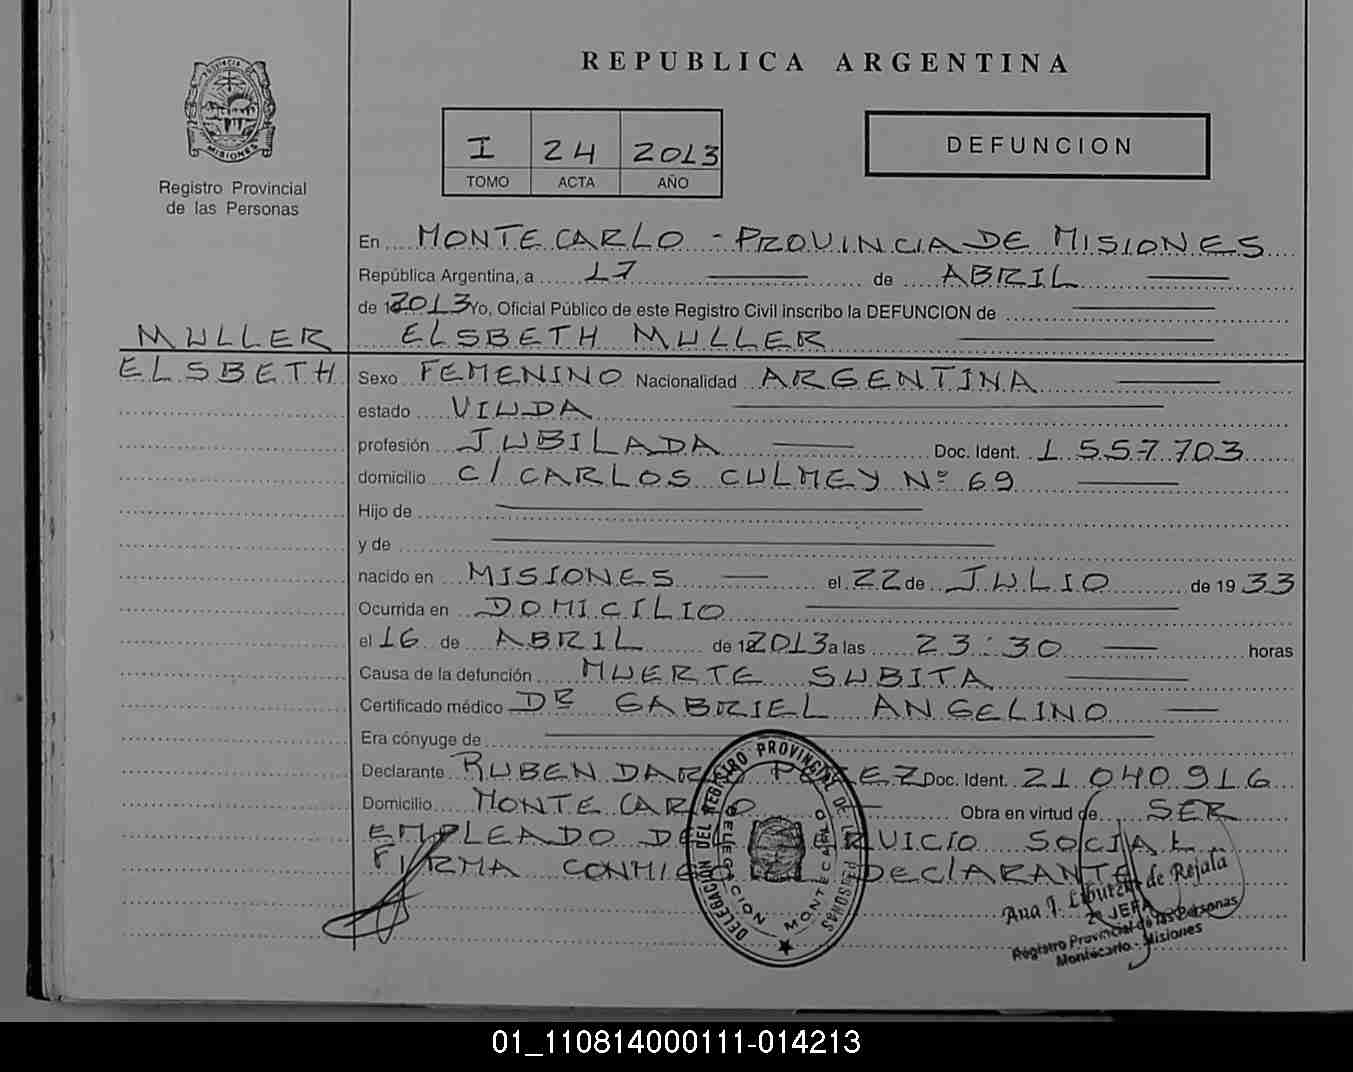 REPUBLICA ARGENTINA
PROVINCIA DE
MISIONES
Registro Provincial
de las Personas
I 24 2013
TOMO ACTA AÑO
DEFUNCION
En MONTECARLO - PROVINCIA DE MISIONES
República Argentina, a 17 de ABRIL
de 2013 Yo, Oficial Público de este Registro Civil inscribo la DEFUNCION de
MULLER ELSBETH MULLER
ELSBETH Sexo FEMENINO Nacionalidad ARGENTINA
estado VIUDA
profesión JUBILADA Doc. Ident. 1 557 703
domicilio C/ CARLOS CULMEY Nº 69
Hijo de
y de
nacido en MISIONES el 22 de JULIO de 1933
Ocurrida en DOMICILIO
el 16 de ABRIL de 2013 a las 23:30 horas
Causa de la defunción MUERTE SUBITA
Certificado médico Dr GABRIEL ANGELINO
Era cónyuge de
Declarante RUBEN DARIO Doc. Ident. 21 040 916
Domicilio MONTECARLO Obra en virtud de SER
EMPLEADO DEL SERVICIO SOCIAL
FIRMA CONMIGO EL DECLARANTE
DELEGACION DEL REGISTRO PROVINCIAL DE LAS PERSONAS
DELEGACION MONTECARLO
Ana J. de Rejala
JEFA
Registro Provincial de las Personas
Montecarlo - Misiones
01_110814000111-014213